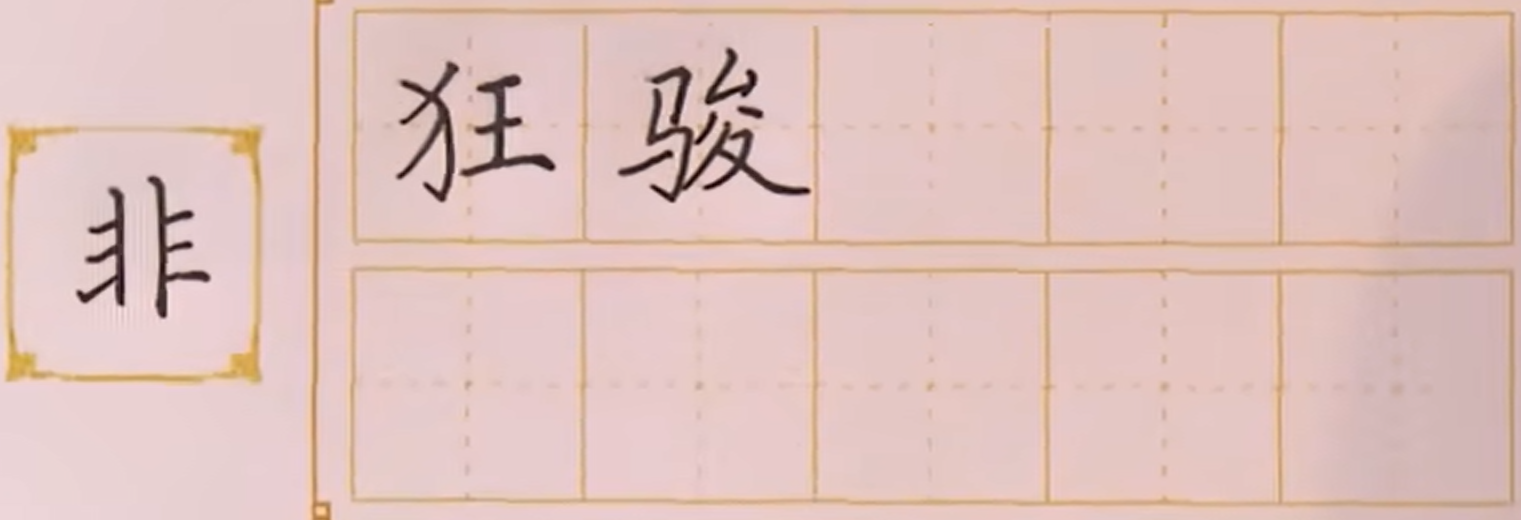 非
狂骏